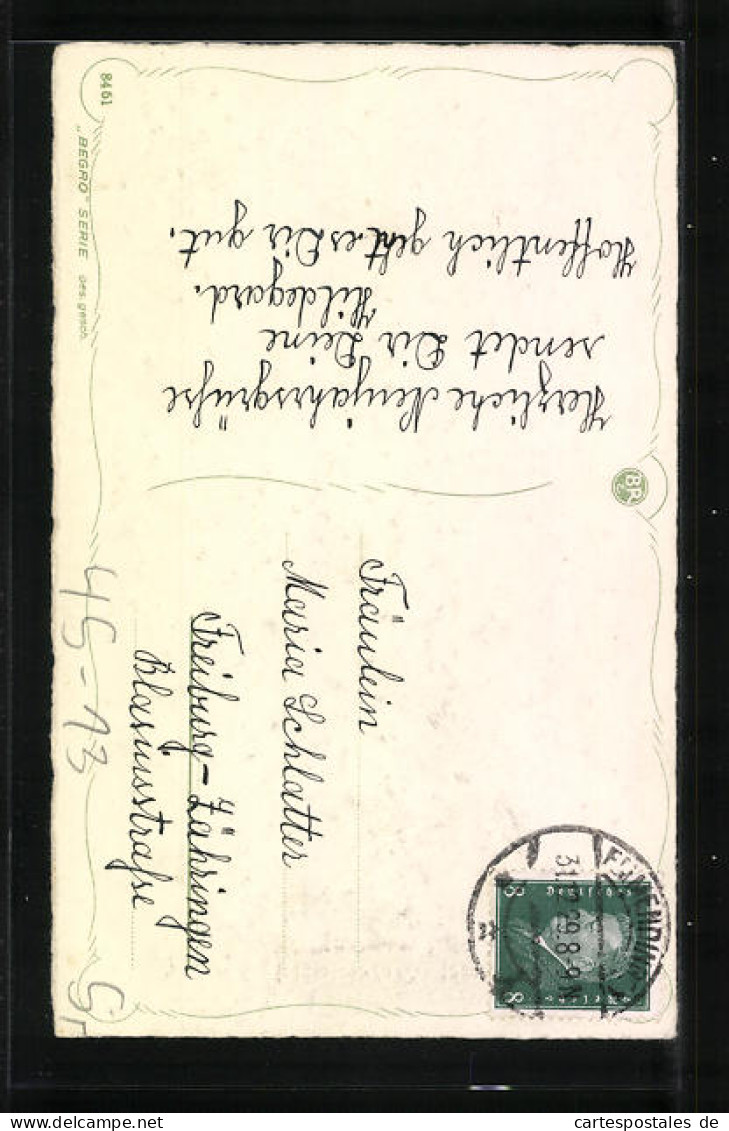 8461
„BEGRO" SERIE Ges. gesch.
Herzliche Neujahrsgrüße
sendet Dir Deine
Hildegard.
Hoffentlich geht es Dir gut.
BR
Fräulein
Maria Schlatter
Freiburg-Zähringen
Blasiusstraße
45-13
8 8
Deutsches Reich
cartespostales de